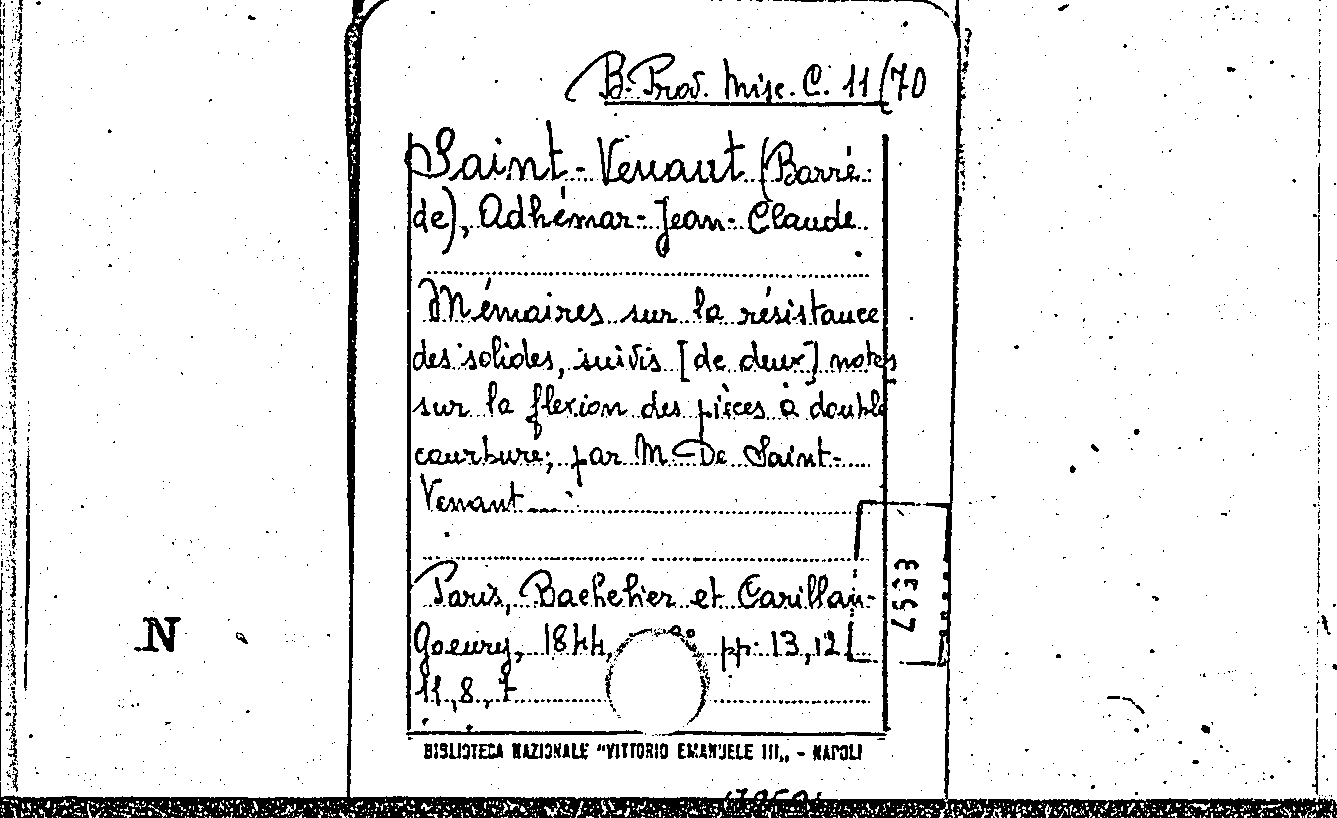 B. Prov. Misc. C. 11(70
Saint-Venant (Barré
de), Adhémar-Jean-Claude
Mémoires sur la résistance
des solides, suivis [de deux] notes
sur la flexion des pièces à double
courbure; par M. De Saint-
Venant....
Paris, Bachelier et Carilian-
Goeury, 1844, pp. 13, 12
11, 8, 7
N
BIBLIOTECA NAZIONALE "VITTORIO EMANUELE III„ - NAPOLI